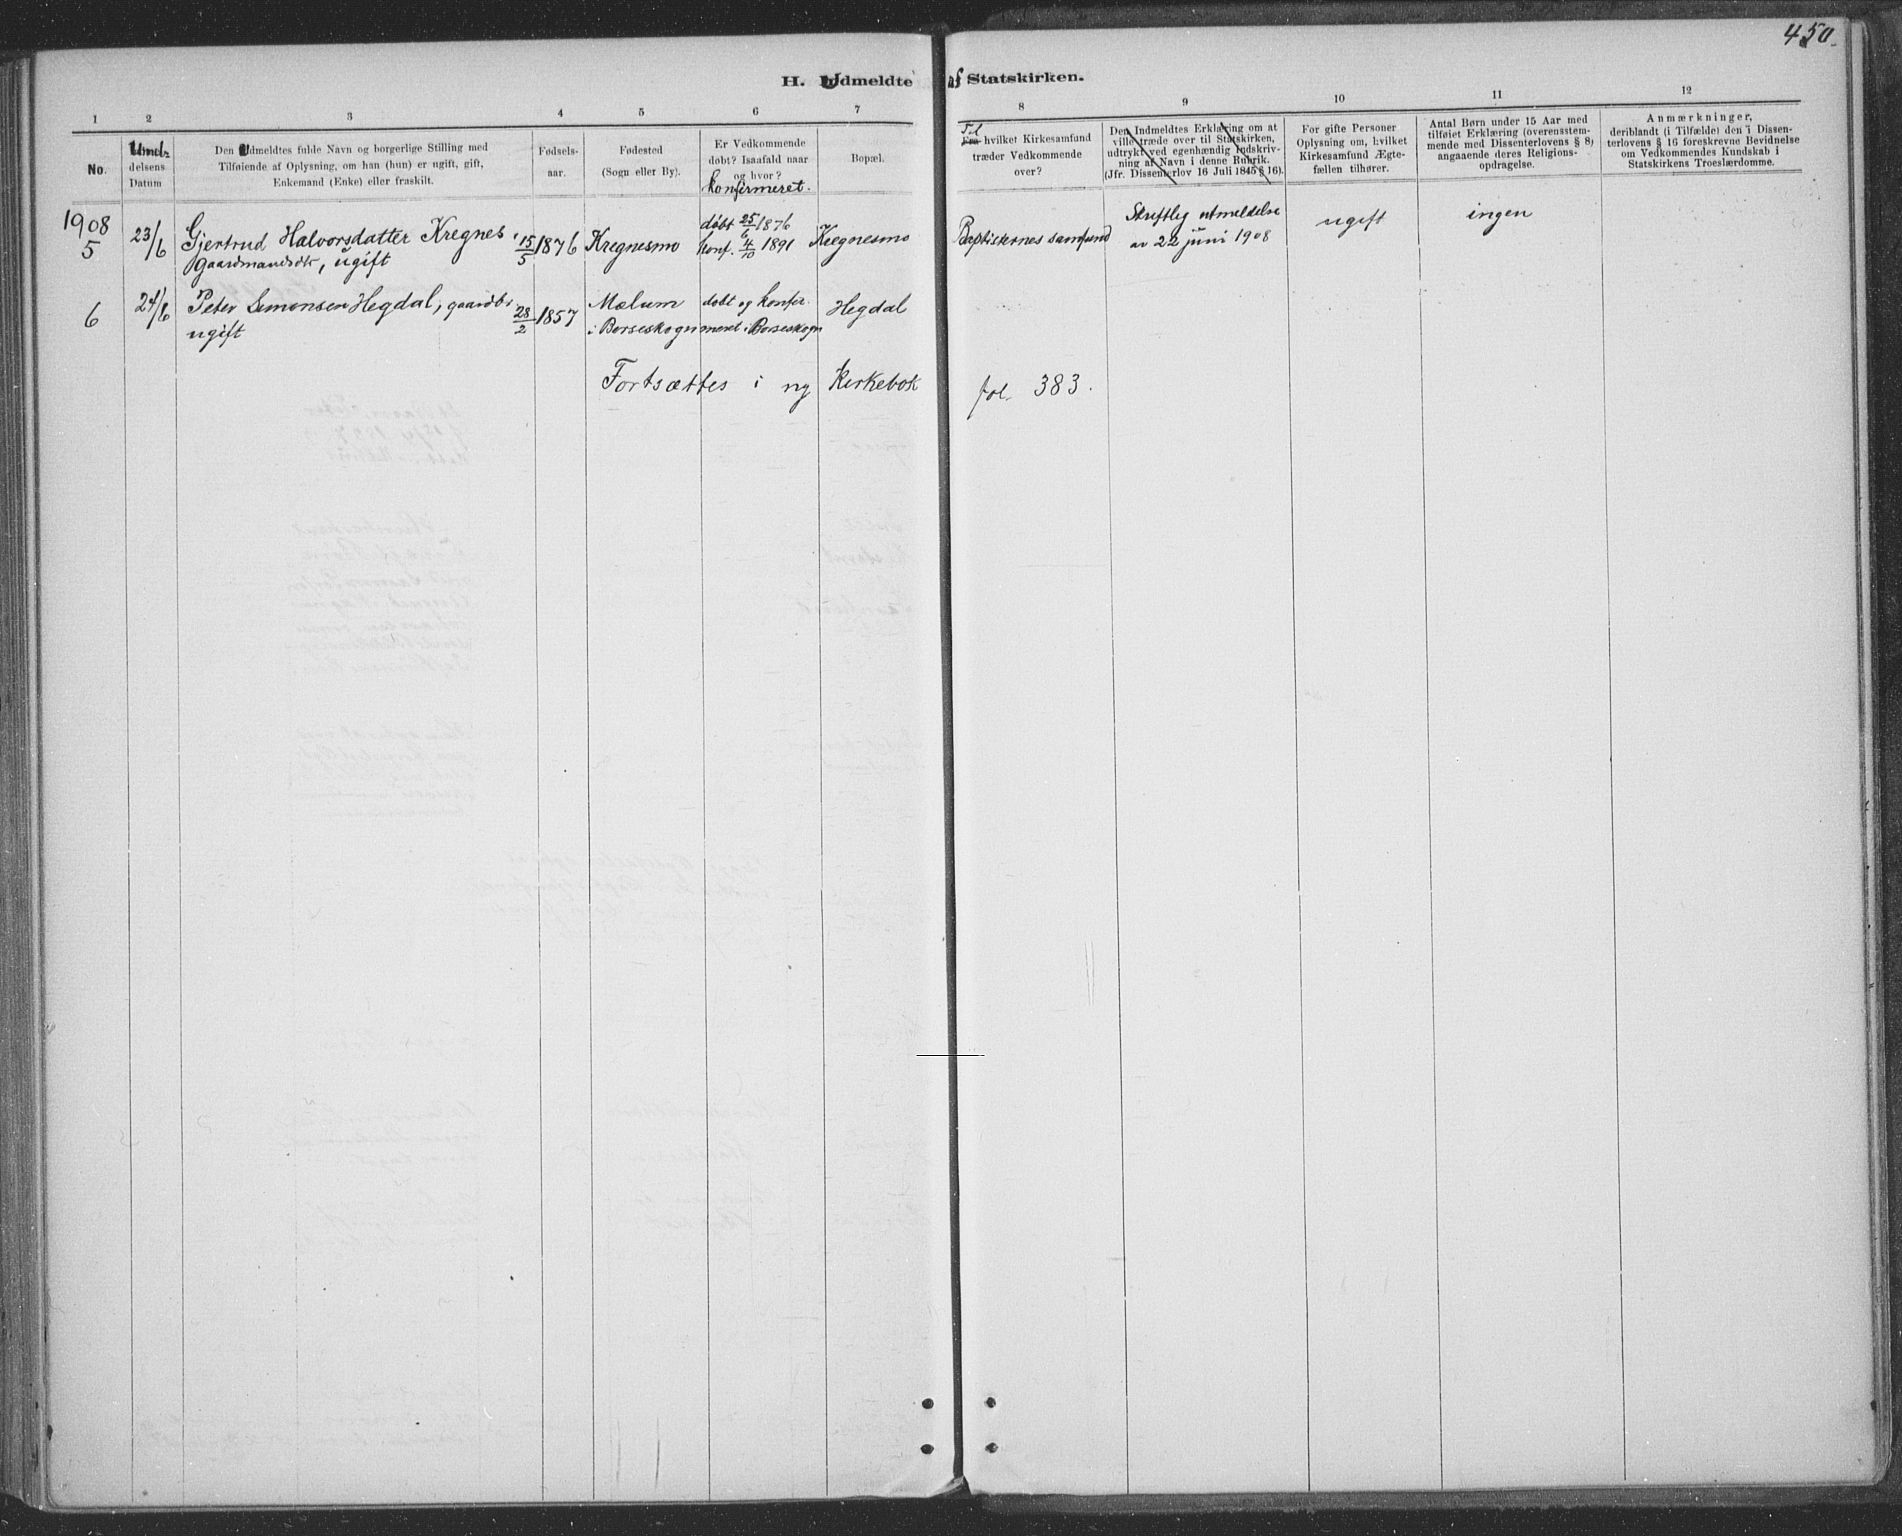 450.
H. Udmeldte af Statskirken.
1 2 3 4 5 6 7 8 9 10 11 12
No.
Utmel-
delsens
Datum
Den Udmeldtes fulde Navn og borgerlige Stilling med
Tilføiende af Oplysning, om han (hun) er ugift, gift,
Enkemand (Enke) eller fraskilt.
Fødsels-
aar.
Fødested
(Sogn eller By).
Er Vedkommende
døbt? Isaafald naar
og hvor?
konfirmeret.
Bopæl.
Til
Fra hvilket Kirkesamfund
træder Vedkommende
over?
Den Indmeldtes Erklæring om at
ville træde over til Statskirken,
udtrykt ved egenhændig Indskriv-
ning af Navn i denne Rubrik.
(Jfr. Dissenterlov 16 Juli 1845 § 16).
For gifte Personer
Oplysning om, hvilket
Kirkesamfund Ægte-
fællen tilhører.
Antal Børn under 15 Aar med
tilføiet Erklæring (overensstem-
mende med Dissenterlovens § 8)
angaaende deres Religions-
opdragelse.
Anmærkninger,
deriblandt (i Tilfælde) den i Dissen-
terlovens § 16 foreskrevne Bevidnelse
om Vedkommendes Kundskab i
Statskirkens Troeslærdomme.
1908
5
23/6
Gjertrud Halvorsdatter Kregnes,
gaardmandsdtr, ugift
15/5 1876
Kregnesmo
døbt 25/6 1876
konf. 4/10 1891
Kregnesmo
Baptisternes samfund
Skriftlig utmeldelse
av 22 juni 1908
ugift
ingen
6
24/6
Peter Simonsen Hegdal, gaardbr.
ugift
28/2 1857
Mælum
i Børseskogn
døbt og konfir-
meret i Børseskogn
Hegdal
Fortsættes i ny Kirkebok fol. 383.